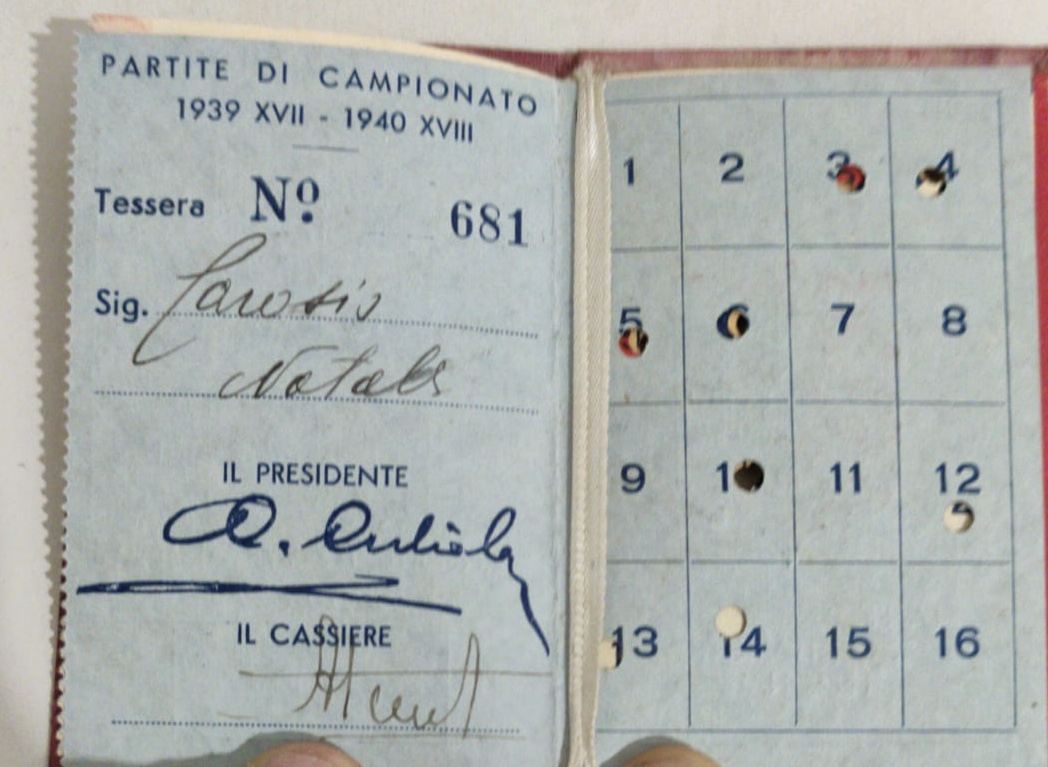 PARTITE DI CAMPIONATO
1939 XVII - 1940 XVIII
Tessera Nº 681
Sig. Carosio
Natale
IL PRESIDENTE
IL CASSIERE
1 2 3 4
5 6 7 8
9 10 11 12
13 14 15 16